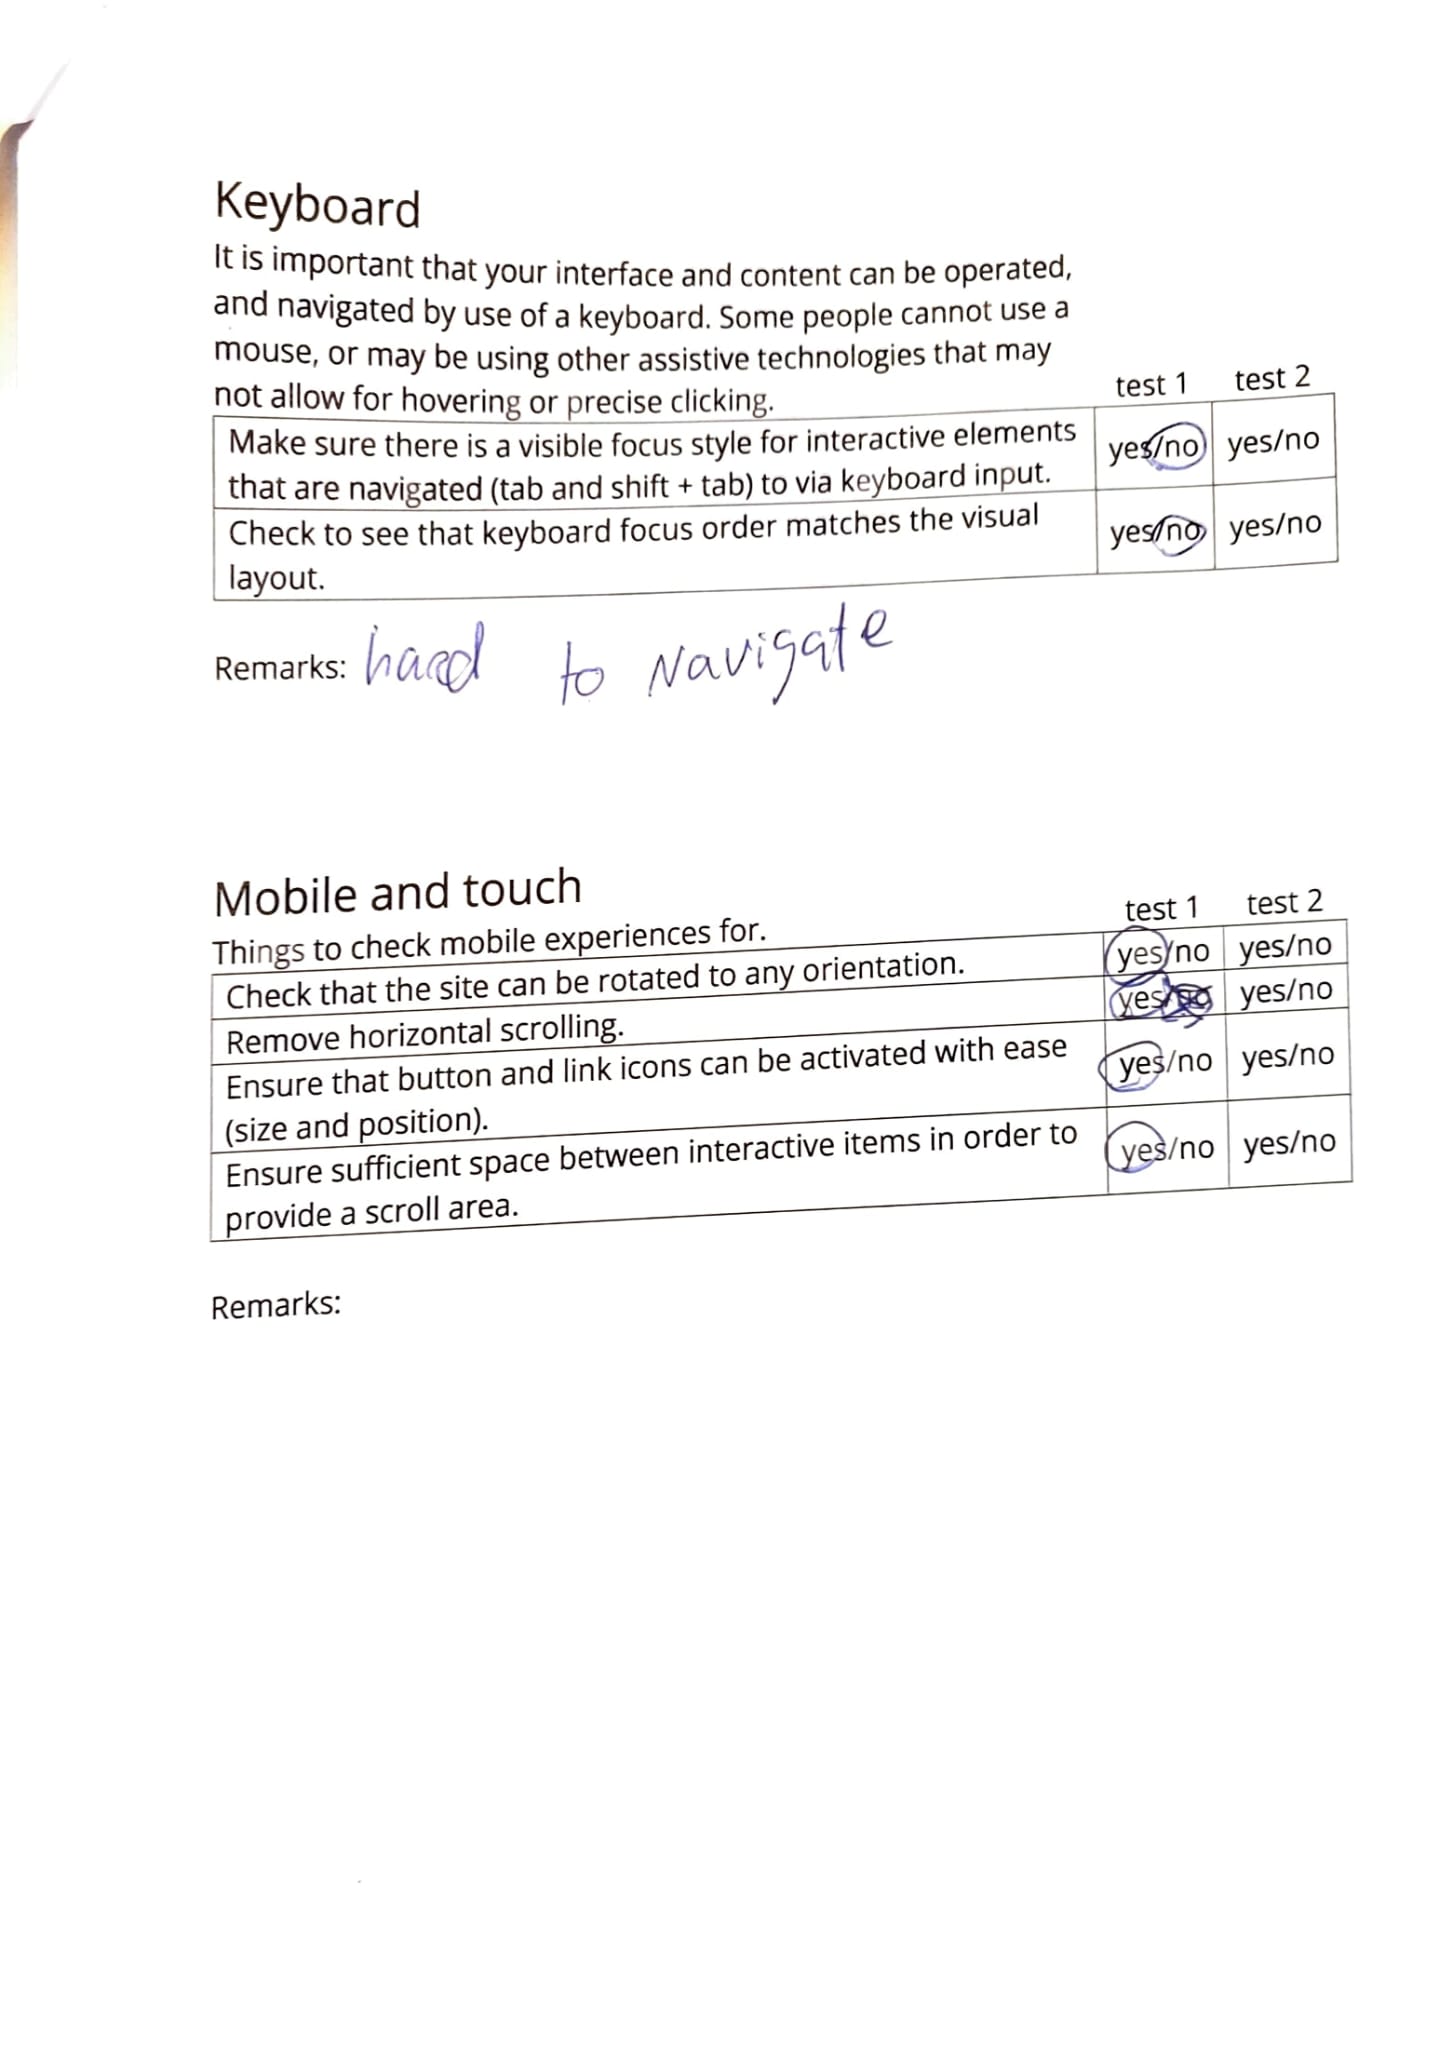 Keyboard
It is important that your interface and content can be operated,
and navigated by use of a keyboard. Some people cannot use a
mouse, or may be using other assistive technologies that may
not allow for hovering or precise clicking.
test 1 test 2
Make sure there is a visible focus style for interactive elements
that are navigated (tab and shift + tab) to via keyboard input.
yes/no yes/no
Check to see that keyboard focus order matches the visual
layout.
yes/no yes/no
Remarks: hard to Navigate
Mobile and touch
Things to check mobile experiences for.
test 1 test 2
Check that the site can be rotated to any orientation. yes/no yes/no
Remove horizontal scrolling. yes/no yes/no
Ensure that button and link icons can be activated with ease
(size and position).
yes/no yes/no
Ensure sufficient space between interactive items in order to
provide a scroll area.
yes/no yes/no
Remarks: